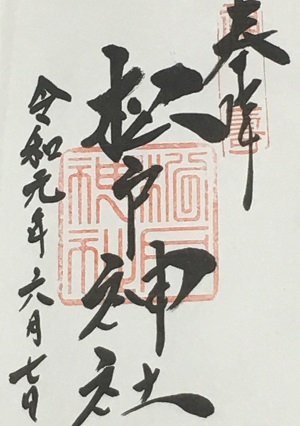 奉拝
松戸神社
松戸神社
令和元年六月七日